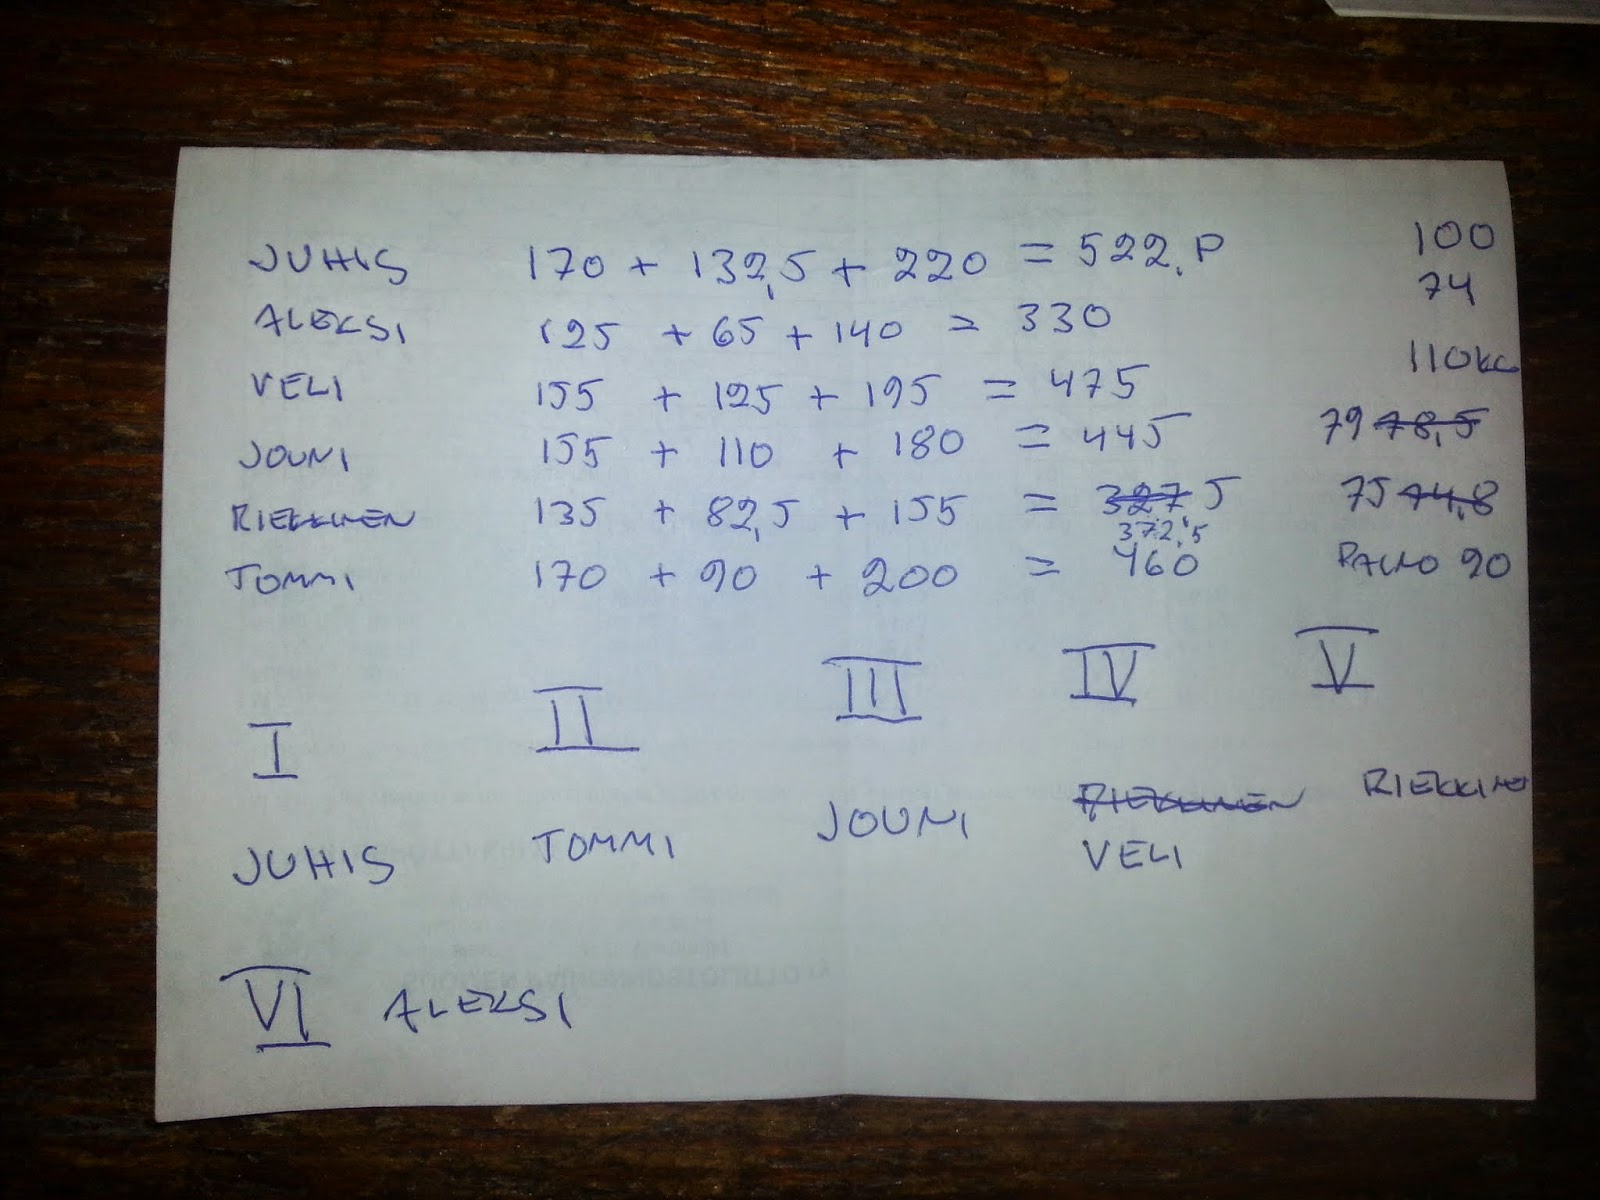 JUHIS 170 + 132,5 + 220 = 522,P 100
ALEKSI 125 + 65 + 140 = 330 74
VELI 155 + 125 + 195 = 475 110KG
JOUNI 155 + 110 + 180 = 445 79 78,5
RIEKKINEN 135 + 82,5 + 155 = 327,5 75 74,8
372,5
TOMMI 170 + 90 + 200 = 460 PAINO 90
I II III IV V
JUHIS TOMMI JOUNI RIEKKINEN RIEKKINEN
VELI
VI ALEKSI